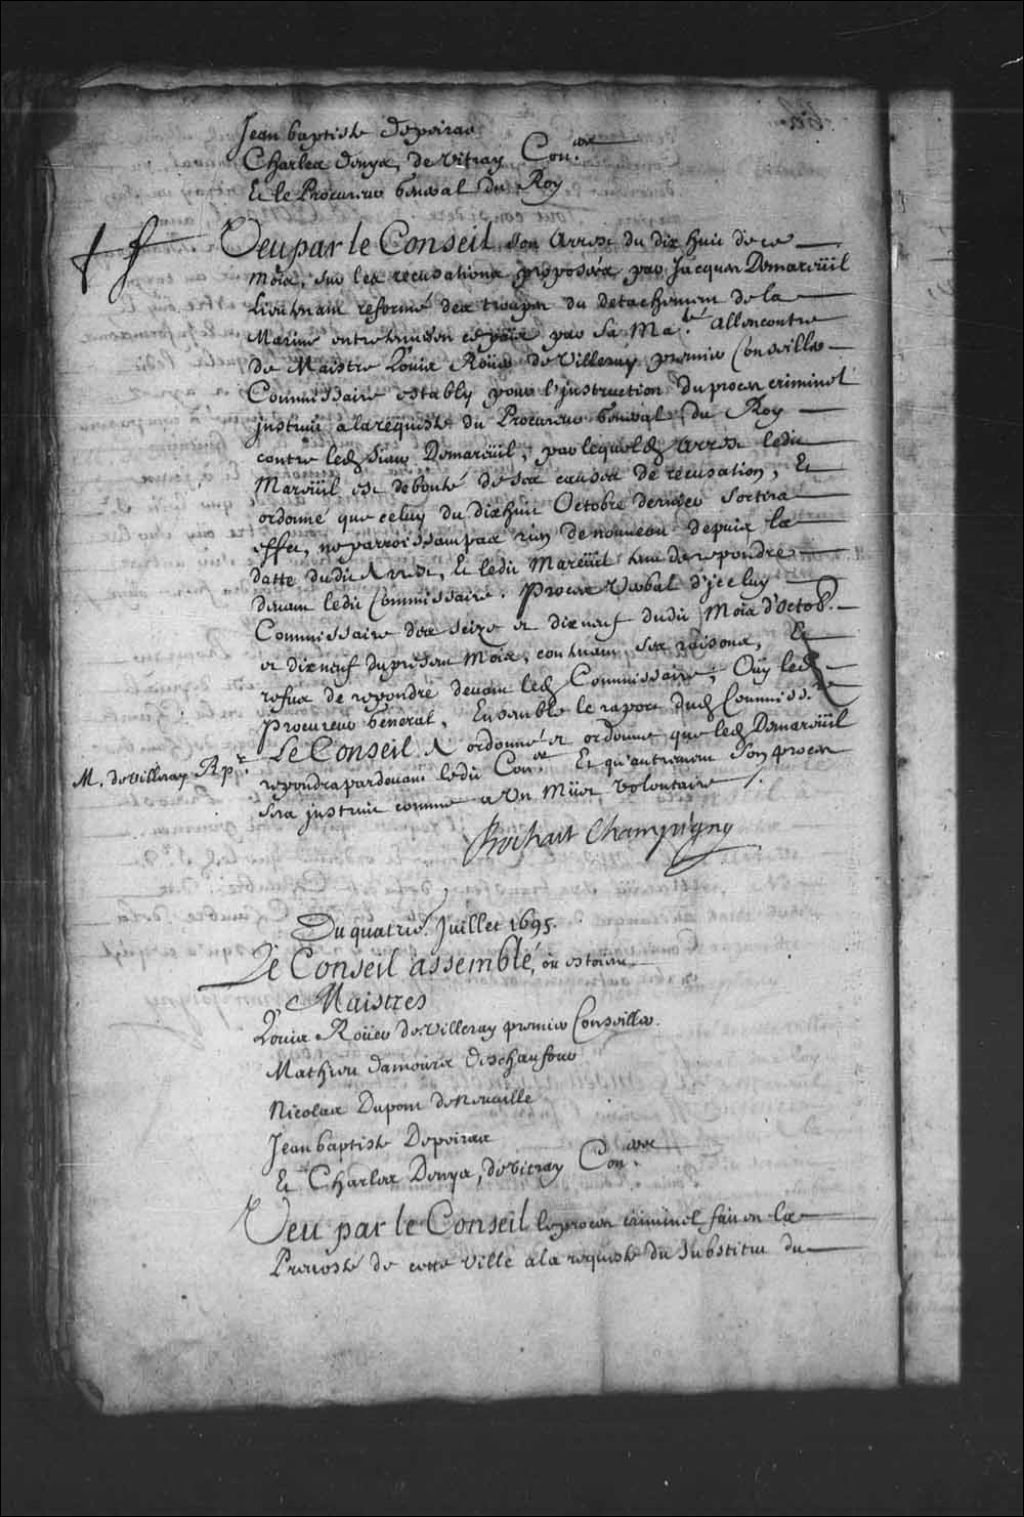 Jean baptiste depeiras
Charles denys, de Vitray Con.ers
Et le Procureur general du Roy
Veu par le Conseil son Arrest du dix huit de ce
mois, sur les recusations proposées par Jacques Demareüil
Lieutenant reformé des troupes du detachement de la
Marine entretenües en ce païs par Sa Ma.té allencontre
de Maistre Louis Roüer de Villeray premier Conseiller
Commissaire estably pour l'jnstruction du proces criminel
jnstruit a la requeste du Procureur general du Roy
contre led. Sieur Demareüil, par lequel d. Arrest ledit
Mareüil est debouté de ses causes de recusation, Et
ordonné que celuy du dixhuit Octobre dernier Sortira
effet, ne parroissant pas rien de nouveau depuis la
datte dudit Arrest, Et ledit Mareüil tenu de repondre
devant ledit Commissaire. Procez Verbal d'jceluy
Commissaire des seize et dixneuf dudit Mois d'Octob.
et dixneuf du present Mois, contenant ses raisons, Et
refus de repondre devant led. Commissaire, Oüy led.
Procureur General, Ensemble le raport dud. Commiss.re
Le Conseil A ordonné et ordonne que led. Demareüil
M. de Villeray Rp.r
repondra pardevant ledit Con.er Et qu'autrement Son proces
sera jnstruit comme a Vn Müet Volontaire /.
Bochart Champigny
Du quatrie. Juillet 1695.
Le Conseil assemblé, ou estoient
Maistres
Louis Roüer de Villeray premier Conseiller
Mathieu damours deschaufour
Nicolas Dupont de Neuuille
Jean baptiste Depeiras
Et Charles Denys, de Vitray Con.ers
Veu par le Conseil le proces criminel fait en la
Preuosté de cette Ville a la requeste du Substitut du